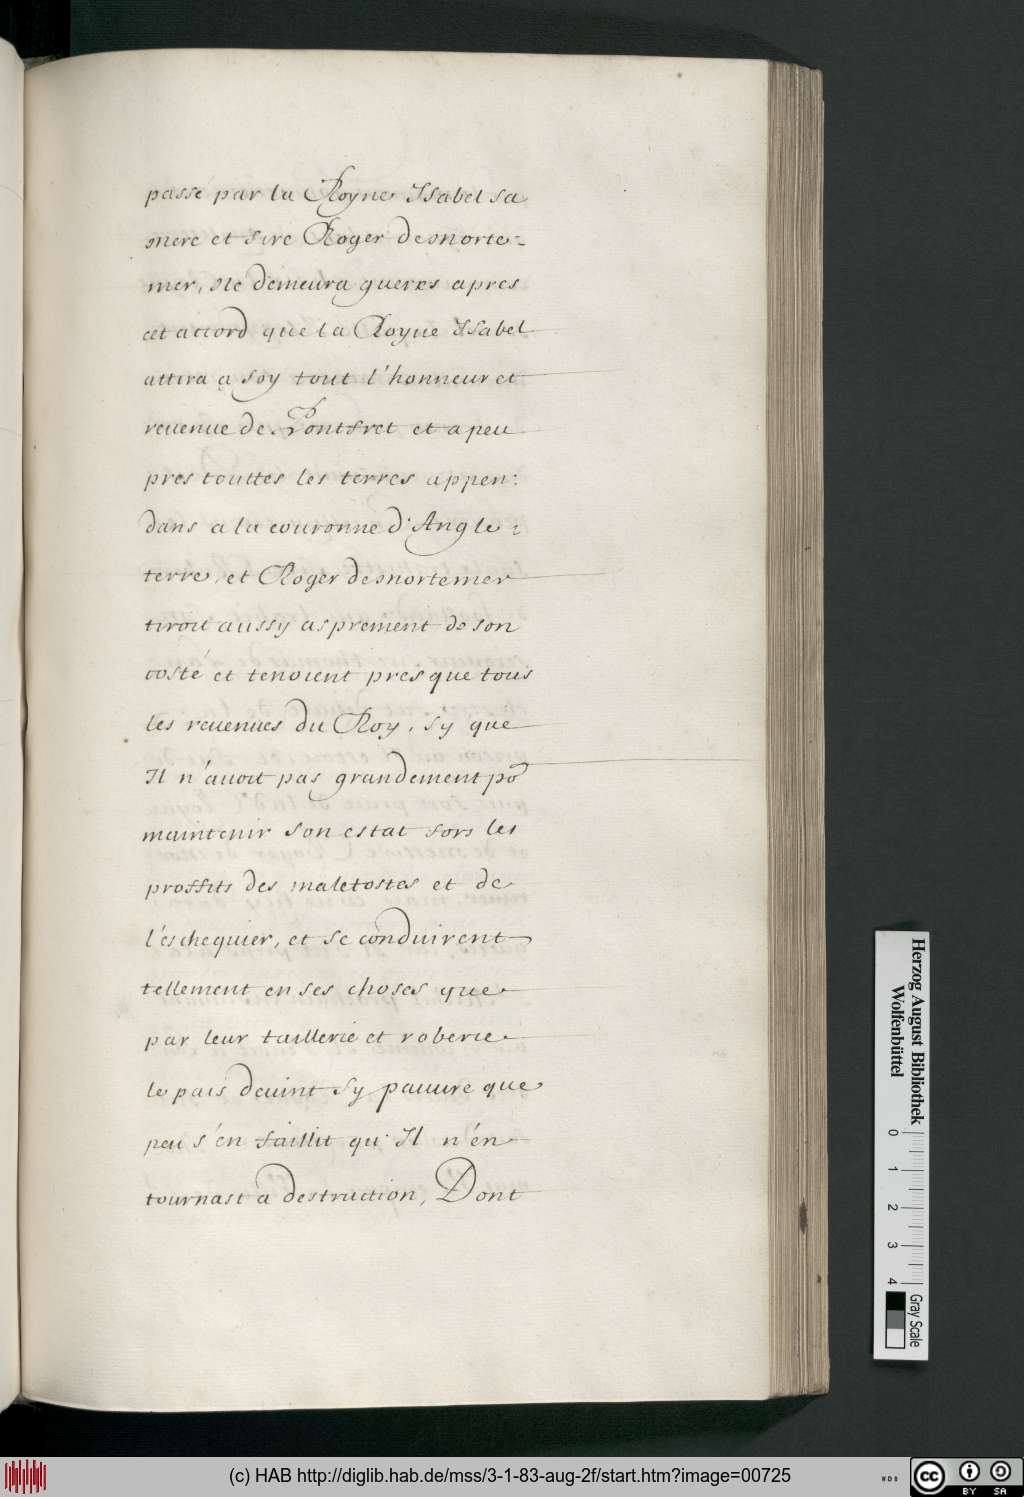 passé par la Royne Isabel sa
mere et sire Roger de morte=
mer, Ne demeura gueres apres
cet accord que la Royne Isabel
attira a soy tout l'honneur et
reuenue de Pontfret et a peu
pres touttes les terres appen:
dans a la couronne d'Angle:
terre, et Roger de mortemer
tiroit aussy asprement de son
costé et tenoient presque tous
les reuenues du Roy, sy que
Il n'auoit pas grandement po^r
maintenir son estat fors les
proffits des maletostes et de
l'eschequier, et se conduirent
tellement en ses choses que
par leur taillerie et roberie
le païs deuint sy pauure que
peu s'en faillit qu'Il n'en
tournast a destruction, Dont
Herzog August Bibliothek
Wolfenbüttel
0 1 2 3 4
Gray Scale
(c) HAB http://diglib.hab.de/mss/3-1-83-aug-2f/start.htm?image=00725
WDB
cc BY SA